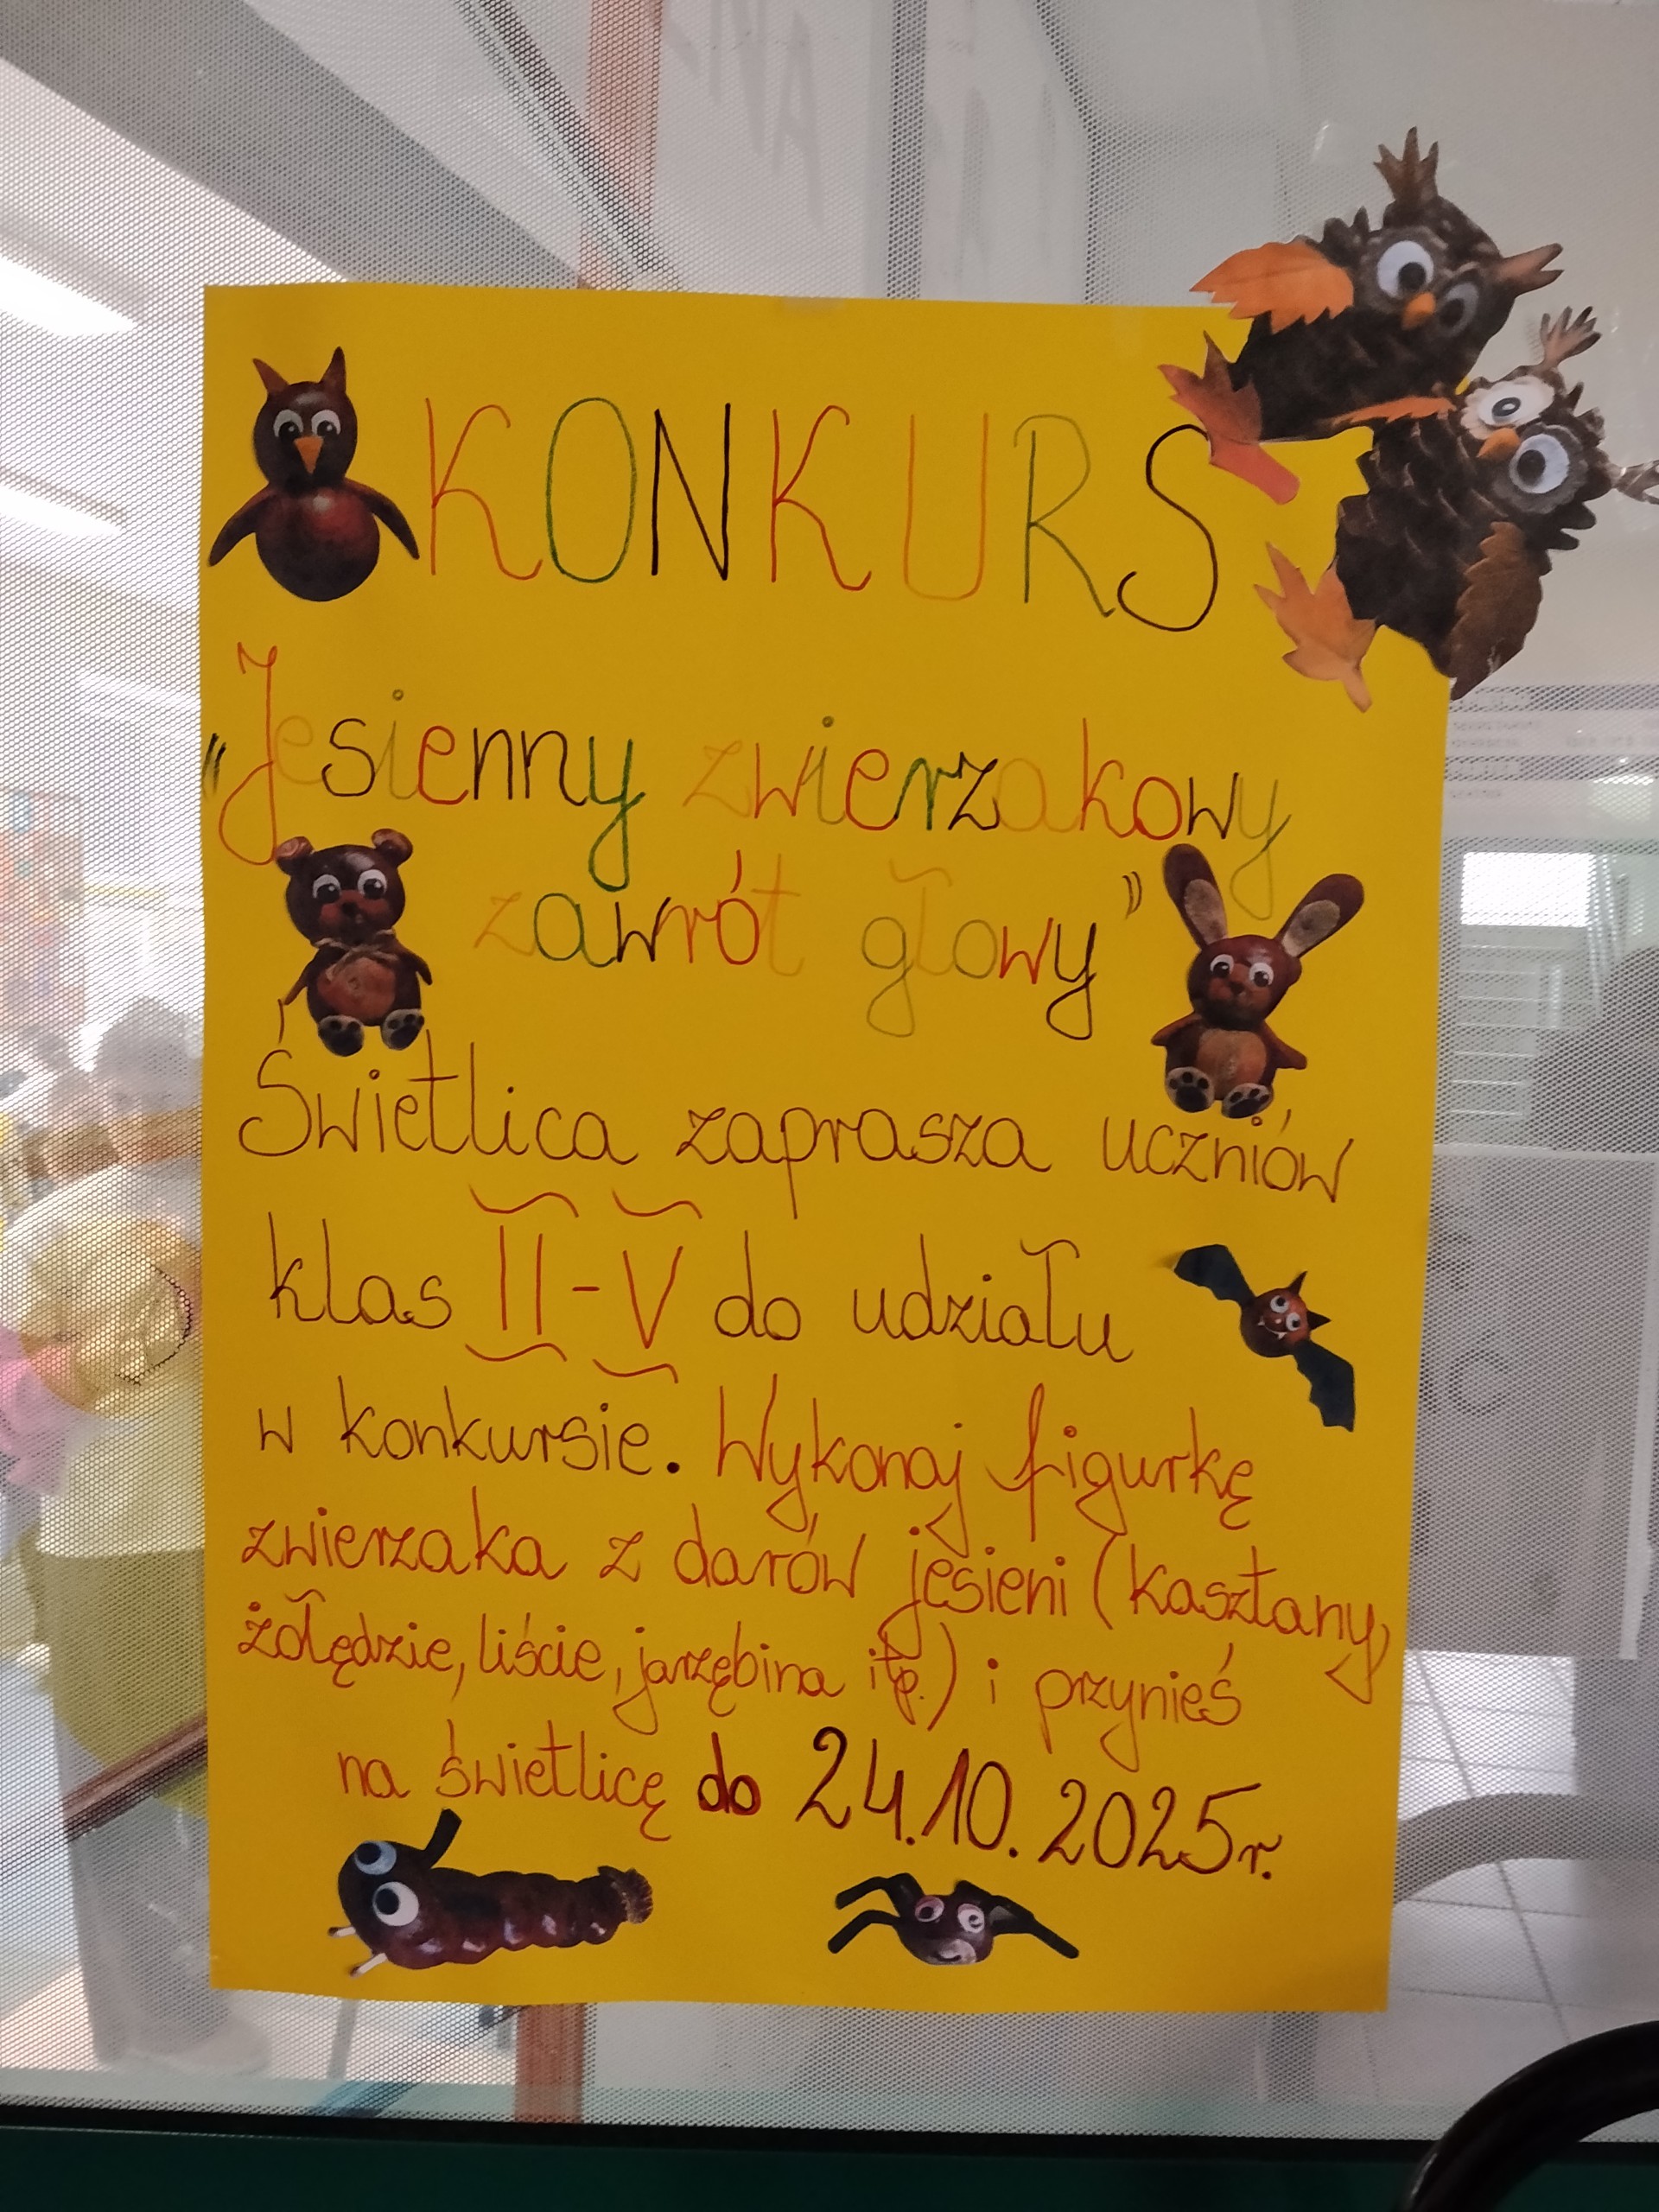 KONKURS
"Jesienny zwierzakowy
zawrót głowy"
Świetlica zaprasza uczniów
klas II-V do udziału
w konkursie. Wykonaj figurkę
zwierzaka z darów jesieni (kasztany,
żołędzie, liście, jarzębina itp.) i przynieś
na świetlicę do 24.10.2025r.